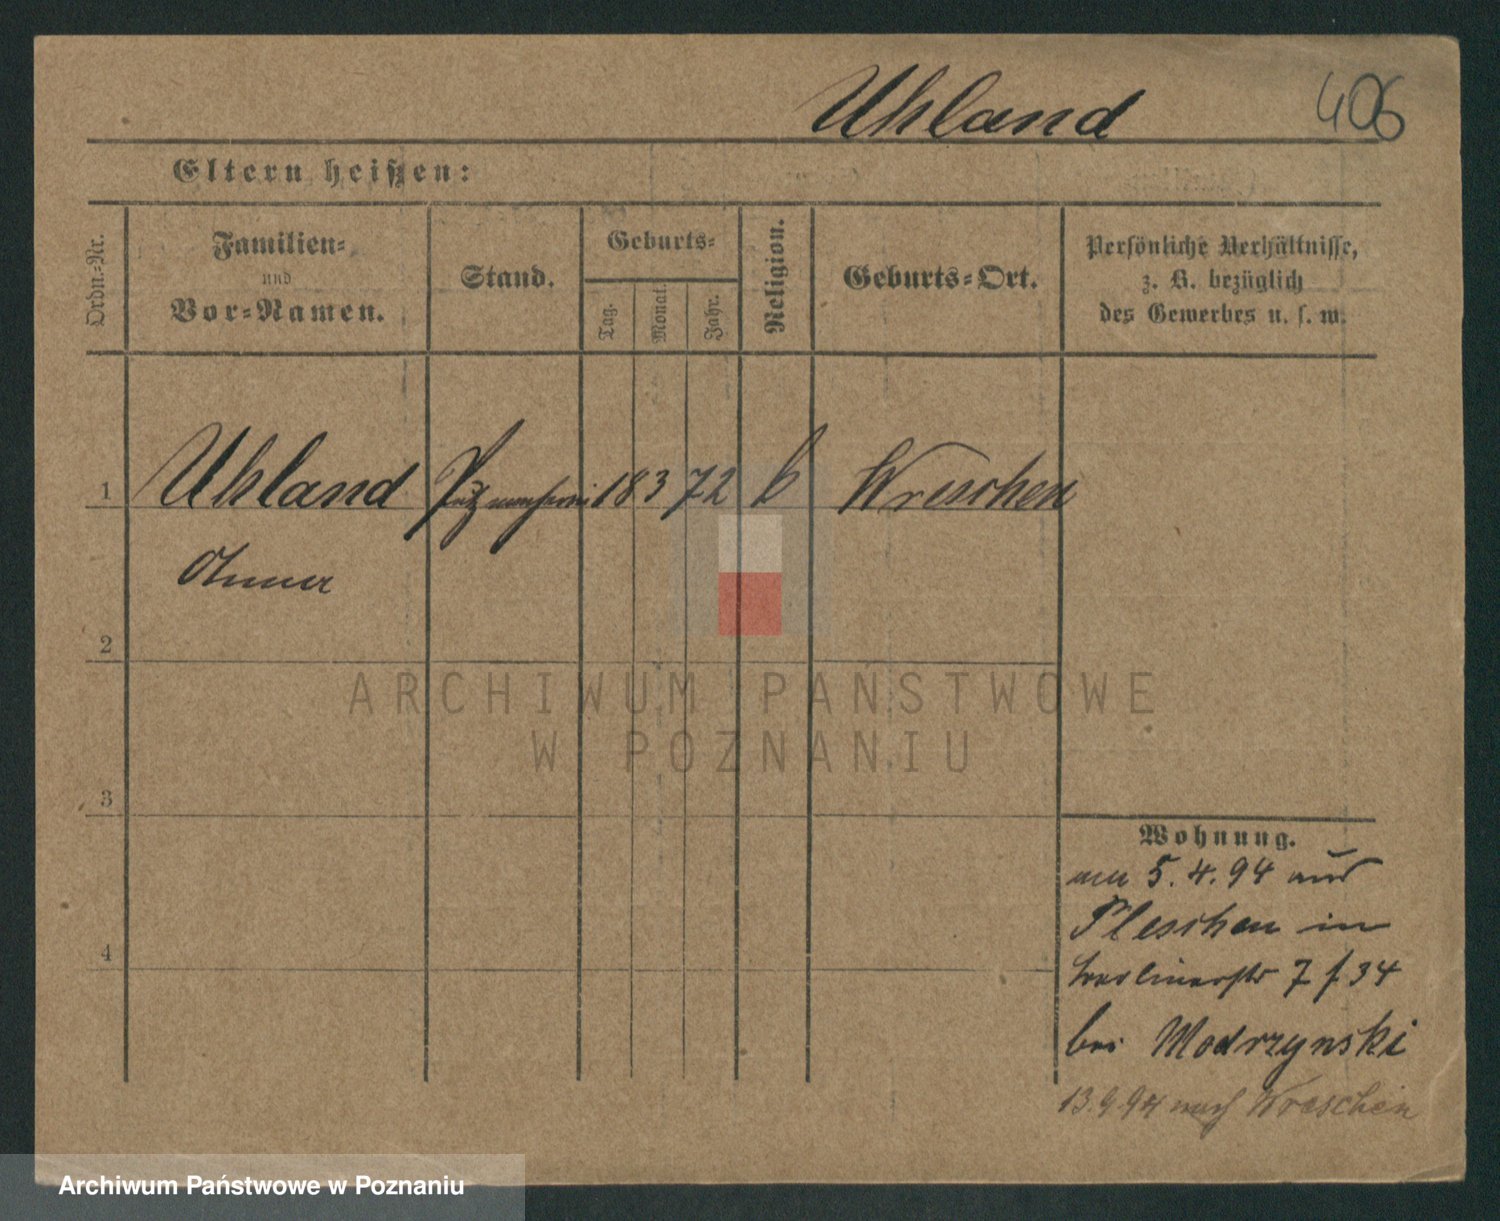 Uhland 406
Eltern heißen:
Ordn.-Nr.
Familien-
und
Vor-Namen.
Stand.
Geburts-
Tag.
Monat.
Jahr.
Religion.
Geburts-Ort.
Persönliche Verhältnisse,
z. B. bezüglich
des Gewerbes u. s. w.
1 Uhland 18 3 72 Wreschen
2
3
4
Wohnung.
am 5.4.94 aus
Pleschen in
Berlinerstr 7 f 34
bei Modrzynski
13.9.94 nach Wreschen
ARCHIWUM PAŃSTWOWE
W POZNANIU
Archiwum Państwowe w Poznaniu